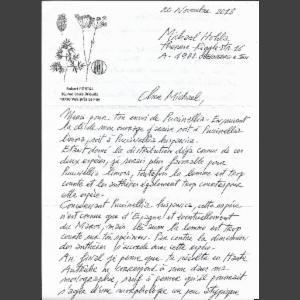 22 Novembre 2018
Michael Hohla
Therese-Riggle-Str. 16
A-4982 Obernberg a Inn
Robert PORTAL
Cher Michael,
Merci pour ton envoi de Puccinellia. En suivant
la clé de mon ouvrage j'arrive soit à Puccinellia
limosa, soit à Puccinellia hispanica
Etant donné la distribution déjà connue de ces
deux espèces, je serais plus favorable pour
Puccinellia limosa, toutefois le lemme est trop
courte et les anthères également trop courtes pour
cette espèce.
Concernant Puccinellia hispanica, cette espèce
n'est connue que d'Espagne et éventuellement
du Maroc, mais le lemme est trop
courte sur ton spécimen. Par contre la dimension
des anthères s'accorde avec cette espèce.
Au final je pense que ta récolte en Haute
Autriche ne correspond à rien dans ma
monographie, mais je pense qu'il pourrait
s'agir d'une morphologie un peu atypique